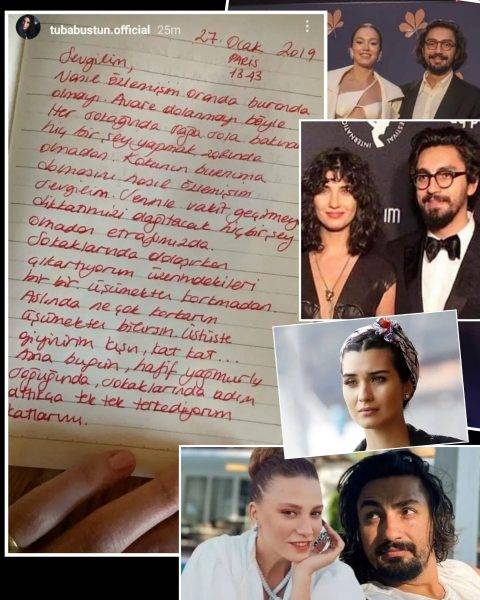 tubabustun.official 25m
27. Ocak 2019
PARIS
13.43
Sevgilim,
Nasıl özlemişim oranda buranda
olmayı. Avare dolanmayı böyle
Her sokağında sağa sola bakına
hiç bir şey yapmak zorunda
olmadan. Kokunun burnuma
dolmasını nasıl özlemişim
sevgilim. Sennle vakit geçirmeyi
dikkatimizi dağıtacak hiç bir şey
olmadan etrafımızda.
Sokaklarında dolaşırken
çıkartıyorum üzerindekileri
bir bir üşümekten korkmadan.
Aslında ne çok korkarım
üşümekten bilirsin. Üstüste
giyinirim kışın, kat kat...
Ama bugün, hafif yağmurlu
soğuğunda, sokaklarında adım
attıkça tek tek terkediyorum
katlarımı.
INTERNATIONAL
FESTIVAL
im